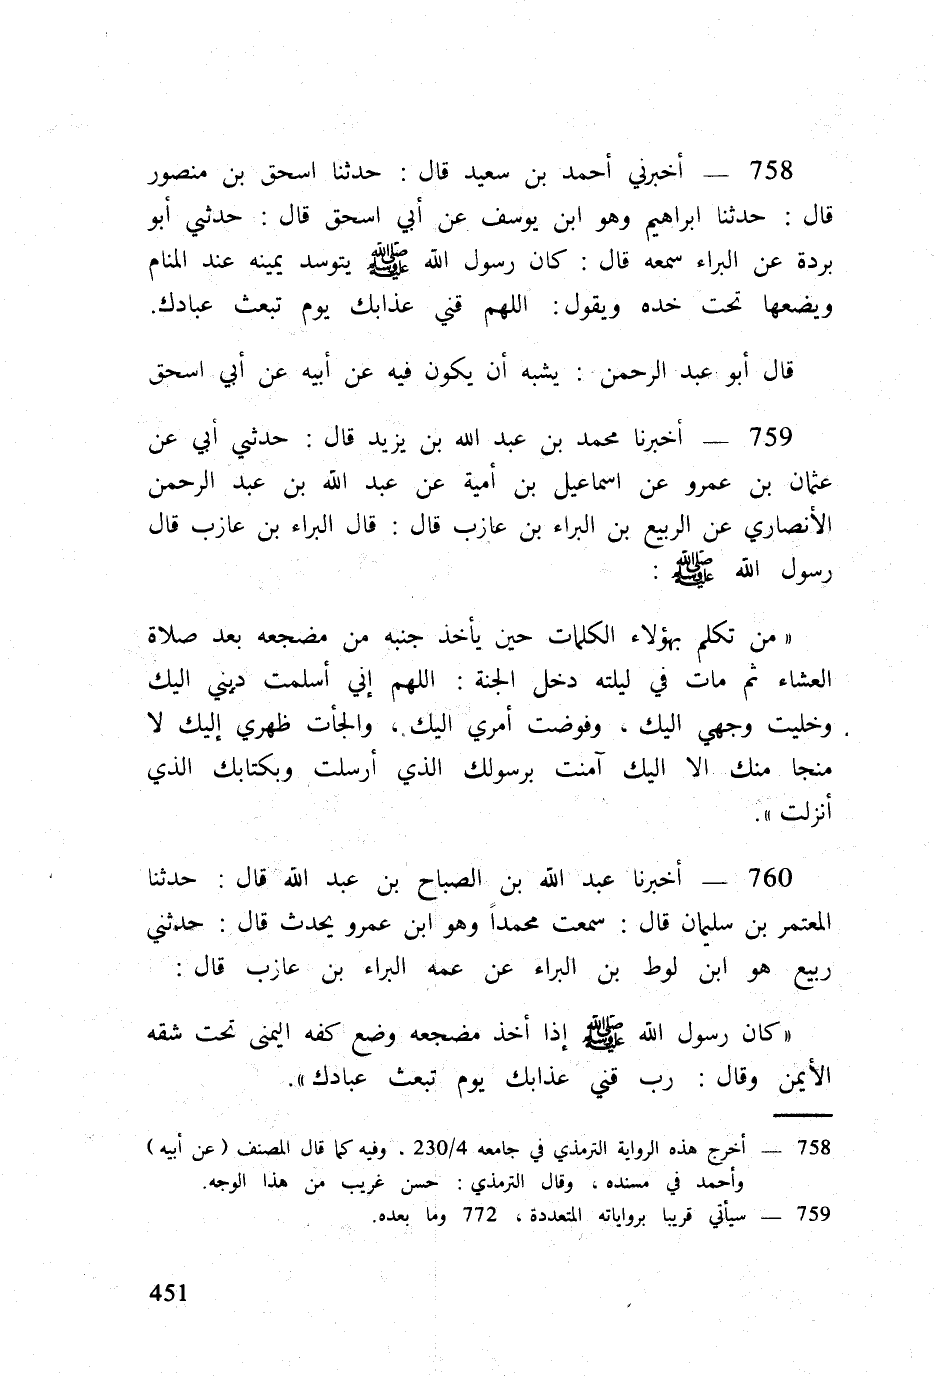 758 — أخبرني أحمد بن سعيد قال : حدثنا اسحق بن منصور
قال : حدثنا ابراهيم وهو ابن يوسف عن أبي اسحق قال : حدثني أبو
بردة عن البراء سمعه قال : كان رسول الله ﷺ يتوسد يمينه عند المنام
ويضعها تحت خده ويقول: اللهم قني عذابك يوم تبعث عبادك.
قال أبو عبد الرحمن : يشبه أن يكون فيه عن أبيه عن أبي اسحق
759 — أخبرنا محمد بن عبد الله بن يزيد قال : حدثني أبي عن
عثمان بن عمرو عن اسماعيل بن أمية عن عبد الله بن عبد الرحمن
الأنصاري عن الربيع بن البراء بن عازب قال : قال البراء بن عازب قال
رسول الله ﷺ :
« من تكلم بهؤلاء الكلمات حين يأخذ جنبه من مضجعه بعد صلاة
العشاء ثم مات في ليلته دخل الجنة : اللهم إني أسلمت ديني اليك
وخليت وجهي اليك ، وفوضت أمري اليك ، والجأت ظهري إليك لا
منجا منك الا اليك آمنت برسولك الذي أرسلت وبكتابك الذي
أنزلت ».
760 — أخبرنا عبد الله بن الصباح بن عبد الله قال : حدثنا
المعتمر بن سليمان قال : سمعت محمداً وهو ابن عمرو يحدث قال : حدثني
ربيع هو ابن لوط بن البراء عن عمه البراء بن عازب قال :
«كان رسول الله ﷺ إذا أخذ مضجعه وضع كفه اليمنى تحت شقه
الأيمن وقال : رب قني عذابك يوم تبعث عبادك».
758 — أخرج هذه الرواية الترمذي في جامعه 230/4 . وفيه كما قال المصنف ( عن أبيه )
وأحمد في مسنده ، وقال الترمذي : حسن غريب من هذا الوجه.
759 — سيأتي قريبا برواياته المتعددة ، 772 وما بعده.
451